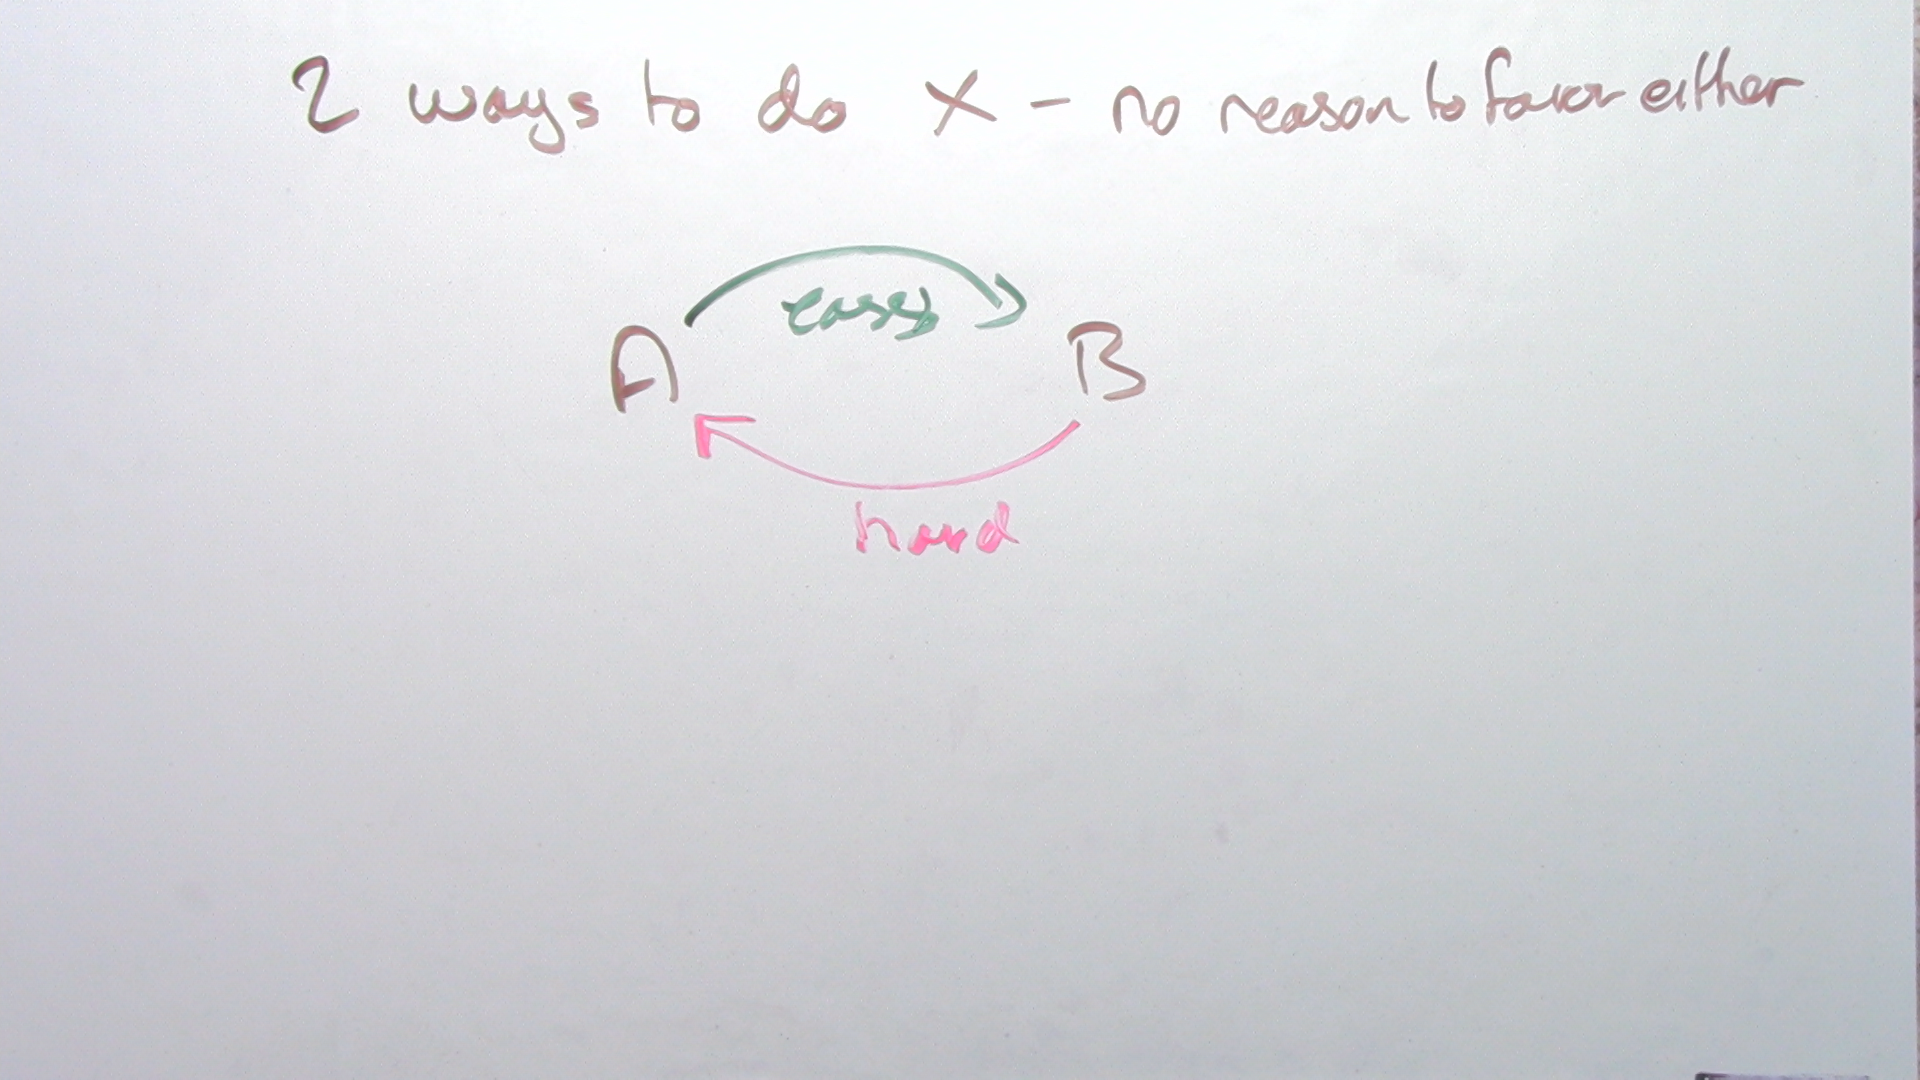 2 ways to do X - no reason to favor either
easy
A B
hard